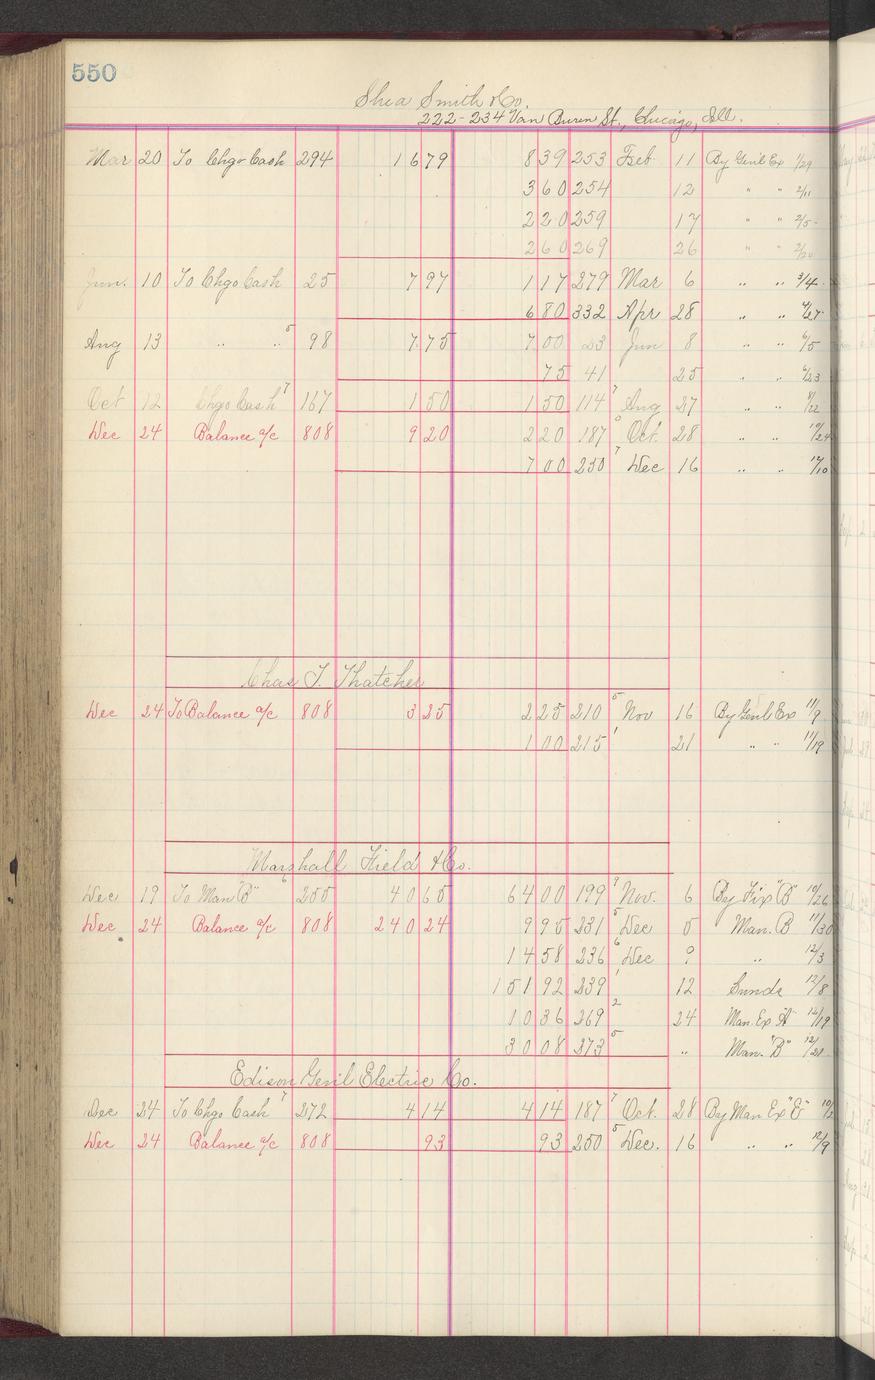 550
Shea Smith & Co.
222-234 Van Buren St., Chicago, Ill.
Mar 20 To Chgo Cash 294 16 79 8 39 253 Feb 11 By Genl Ex 1/29
3 60 254 12 " " 2/11
2 20 259 17 " " 2/5
2 60 269 26 " " 2/20
Jun. 10 To Chgo Cash 25 7 97 1 17 279 Mar 6 " " 3/4
6 80 332 Apr 28 " " 4/27
Aug 13 " " 5 98 7 75 7 00 23 Jun 8 " " 6/5
75 41 25 " " 6/23
Oct 12 Chgo Cash 7 167 1 50 1 50 114 7 Aug 27 " " 8/22
Dec 24 Balance a/c 808 9 20 2 20 187 Oct. 28 " " 10/24
7 00 250 7 Dec 16 " " 12/10
Chas T. Thatcher
Dec 24 To Balance a/c 808 3 25 2 25 210 5 Nov 16 By Genl Exp 11/9
1 00 215 1 21 " " 11/19
Marshall Field & Co.
Dec 19 To Man "B" 6 255 40 65 64 00 199 Nov. 6 By Fix "B" 10/26
Dec 24 Balance a/c 808 240 24 9 95 231 5 Dec 5 Man. B 11/30
14 58 236 6 Dec 9 " 12/3
151 92 239 1 12 Sunds 12/8
10 36 269 2 24 Man. Ex "A" 12/19
30 08 273 5 " Man. "B" 12/21
Edison Genl Electric Co.
Dec 24 To Chgo Cash 7 272 4 14 4 14 187 7 Oct. 28 By Man Ex "E"
Dec 24 Balance a/c 808 93 93 250 5 Dec. 16 " " 12/9